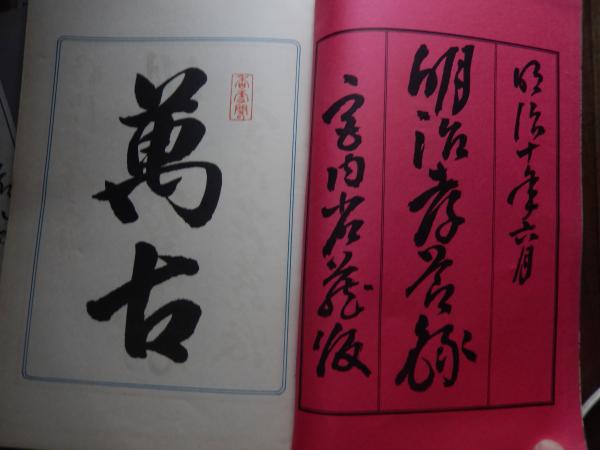 明治十年六月
明治孝節録
宮内省蔵版
萬古